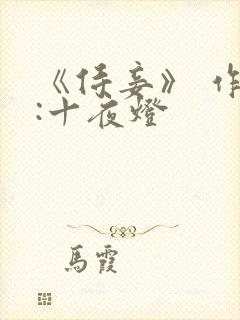 《侍妾》 作
:十夜燈
馬霞